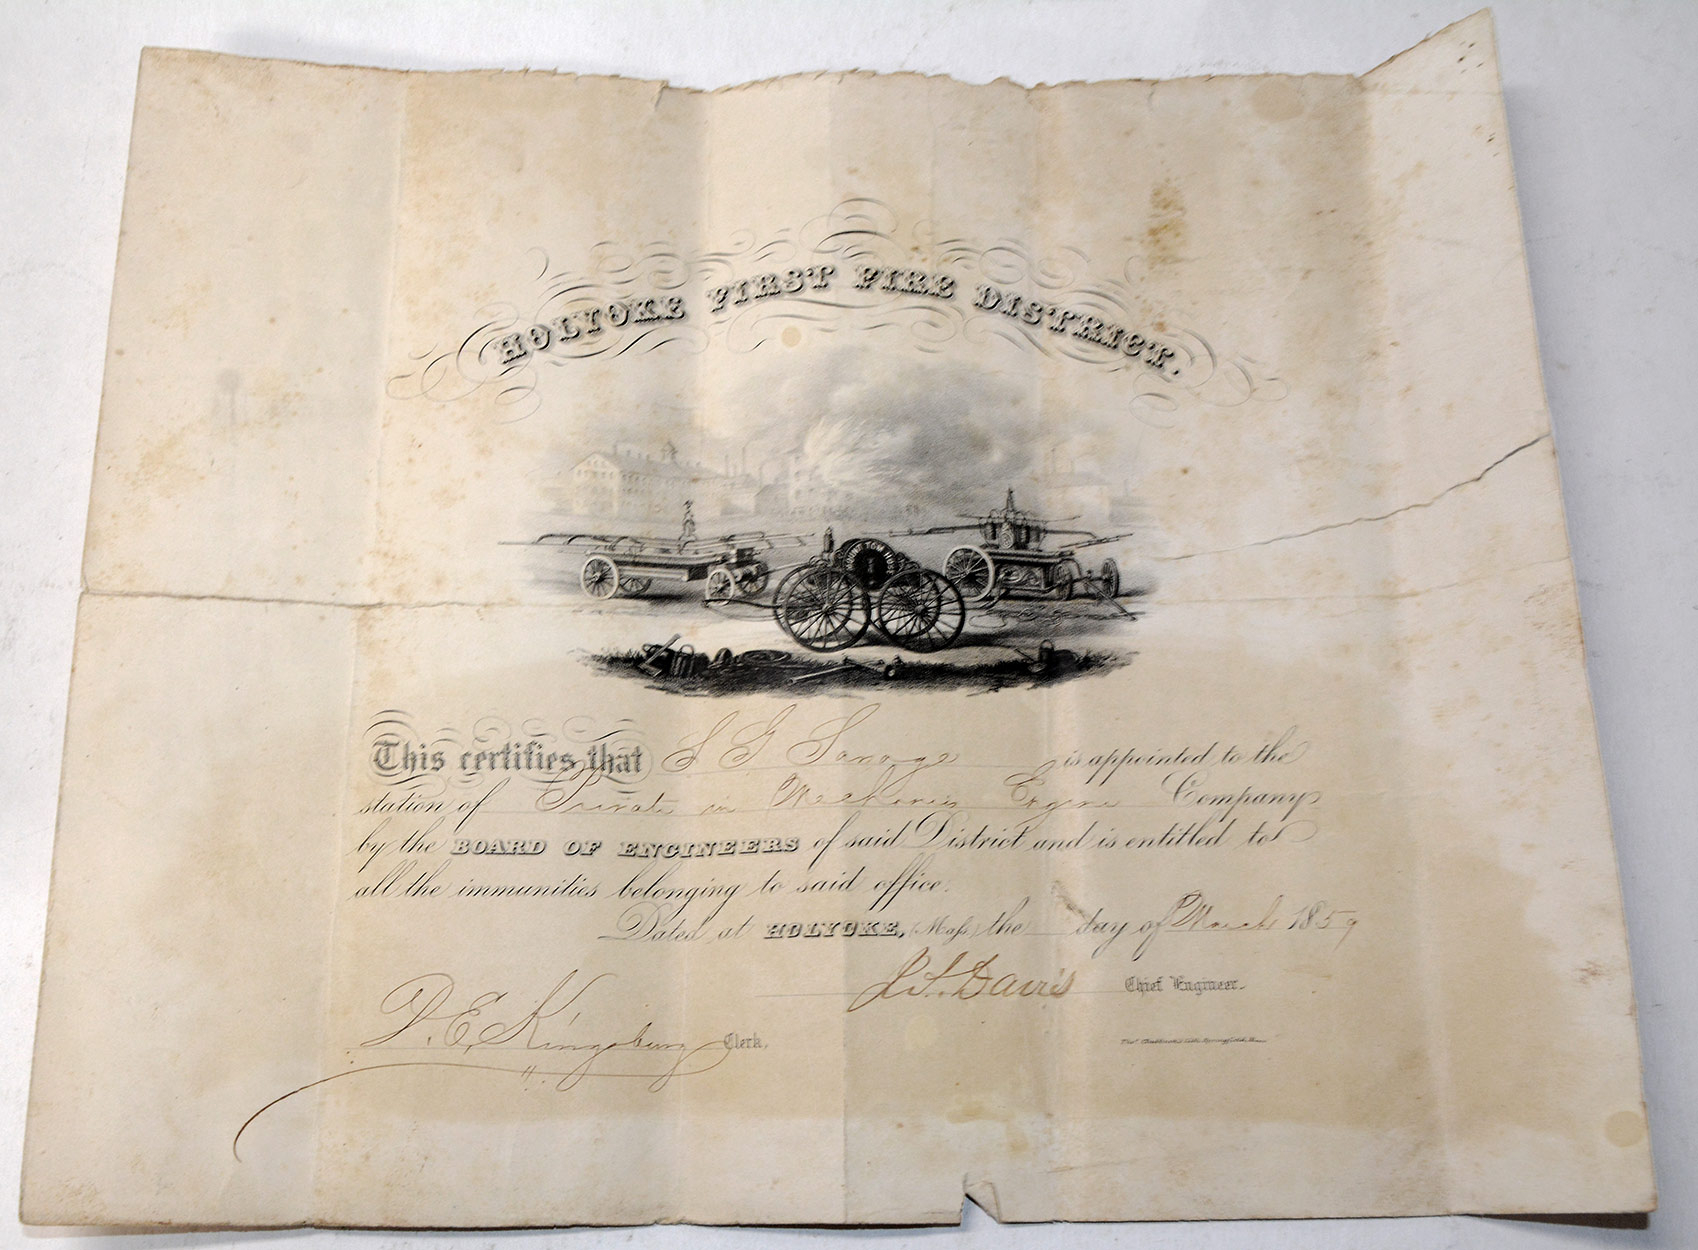 HOLYOKE FIRST FIRE DISTRICT.
MOUNT TOM HOSE
This certifies that S G Savage is appointed to the
station of Private in Mechanics Engine Company
by the BOARD OF ENGINEERS of said District and is entitled to
all the immunities belonging to said office.
Dated at HOLYOKE, Mass, the day of March 1859
J. S. Davis Chief Engineer.
D. E. Kingsbury Clerk.